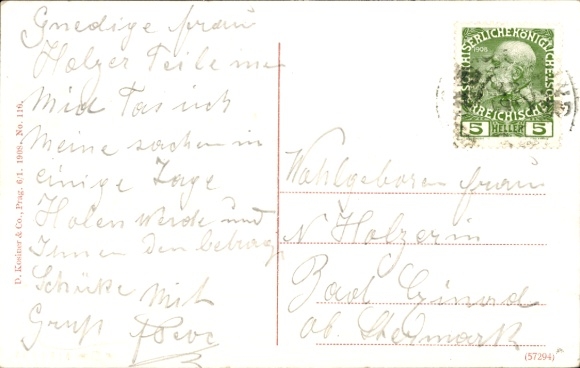 Gnedige frau
Holzer Teile inen
Mid Das ich
Meine sachen in
einige Tage
Holen werde und
Innen den betrag
Schüke Mit
Gruß
D. Kosiner & Co., Prag. 6/1. 1908. No. 116.
KAISERLICHE KÖNIGLICHE
1908
ÖSTERREICHISCHE
5 HELLER 5
Wohlgeboren frau
N Holzerin
Bad
ob. Steirmark
(57294)